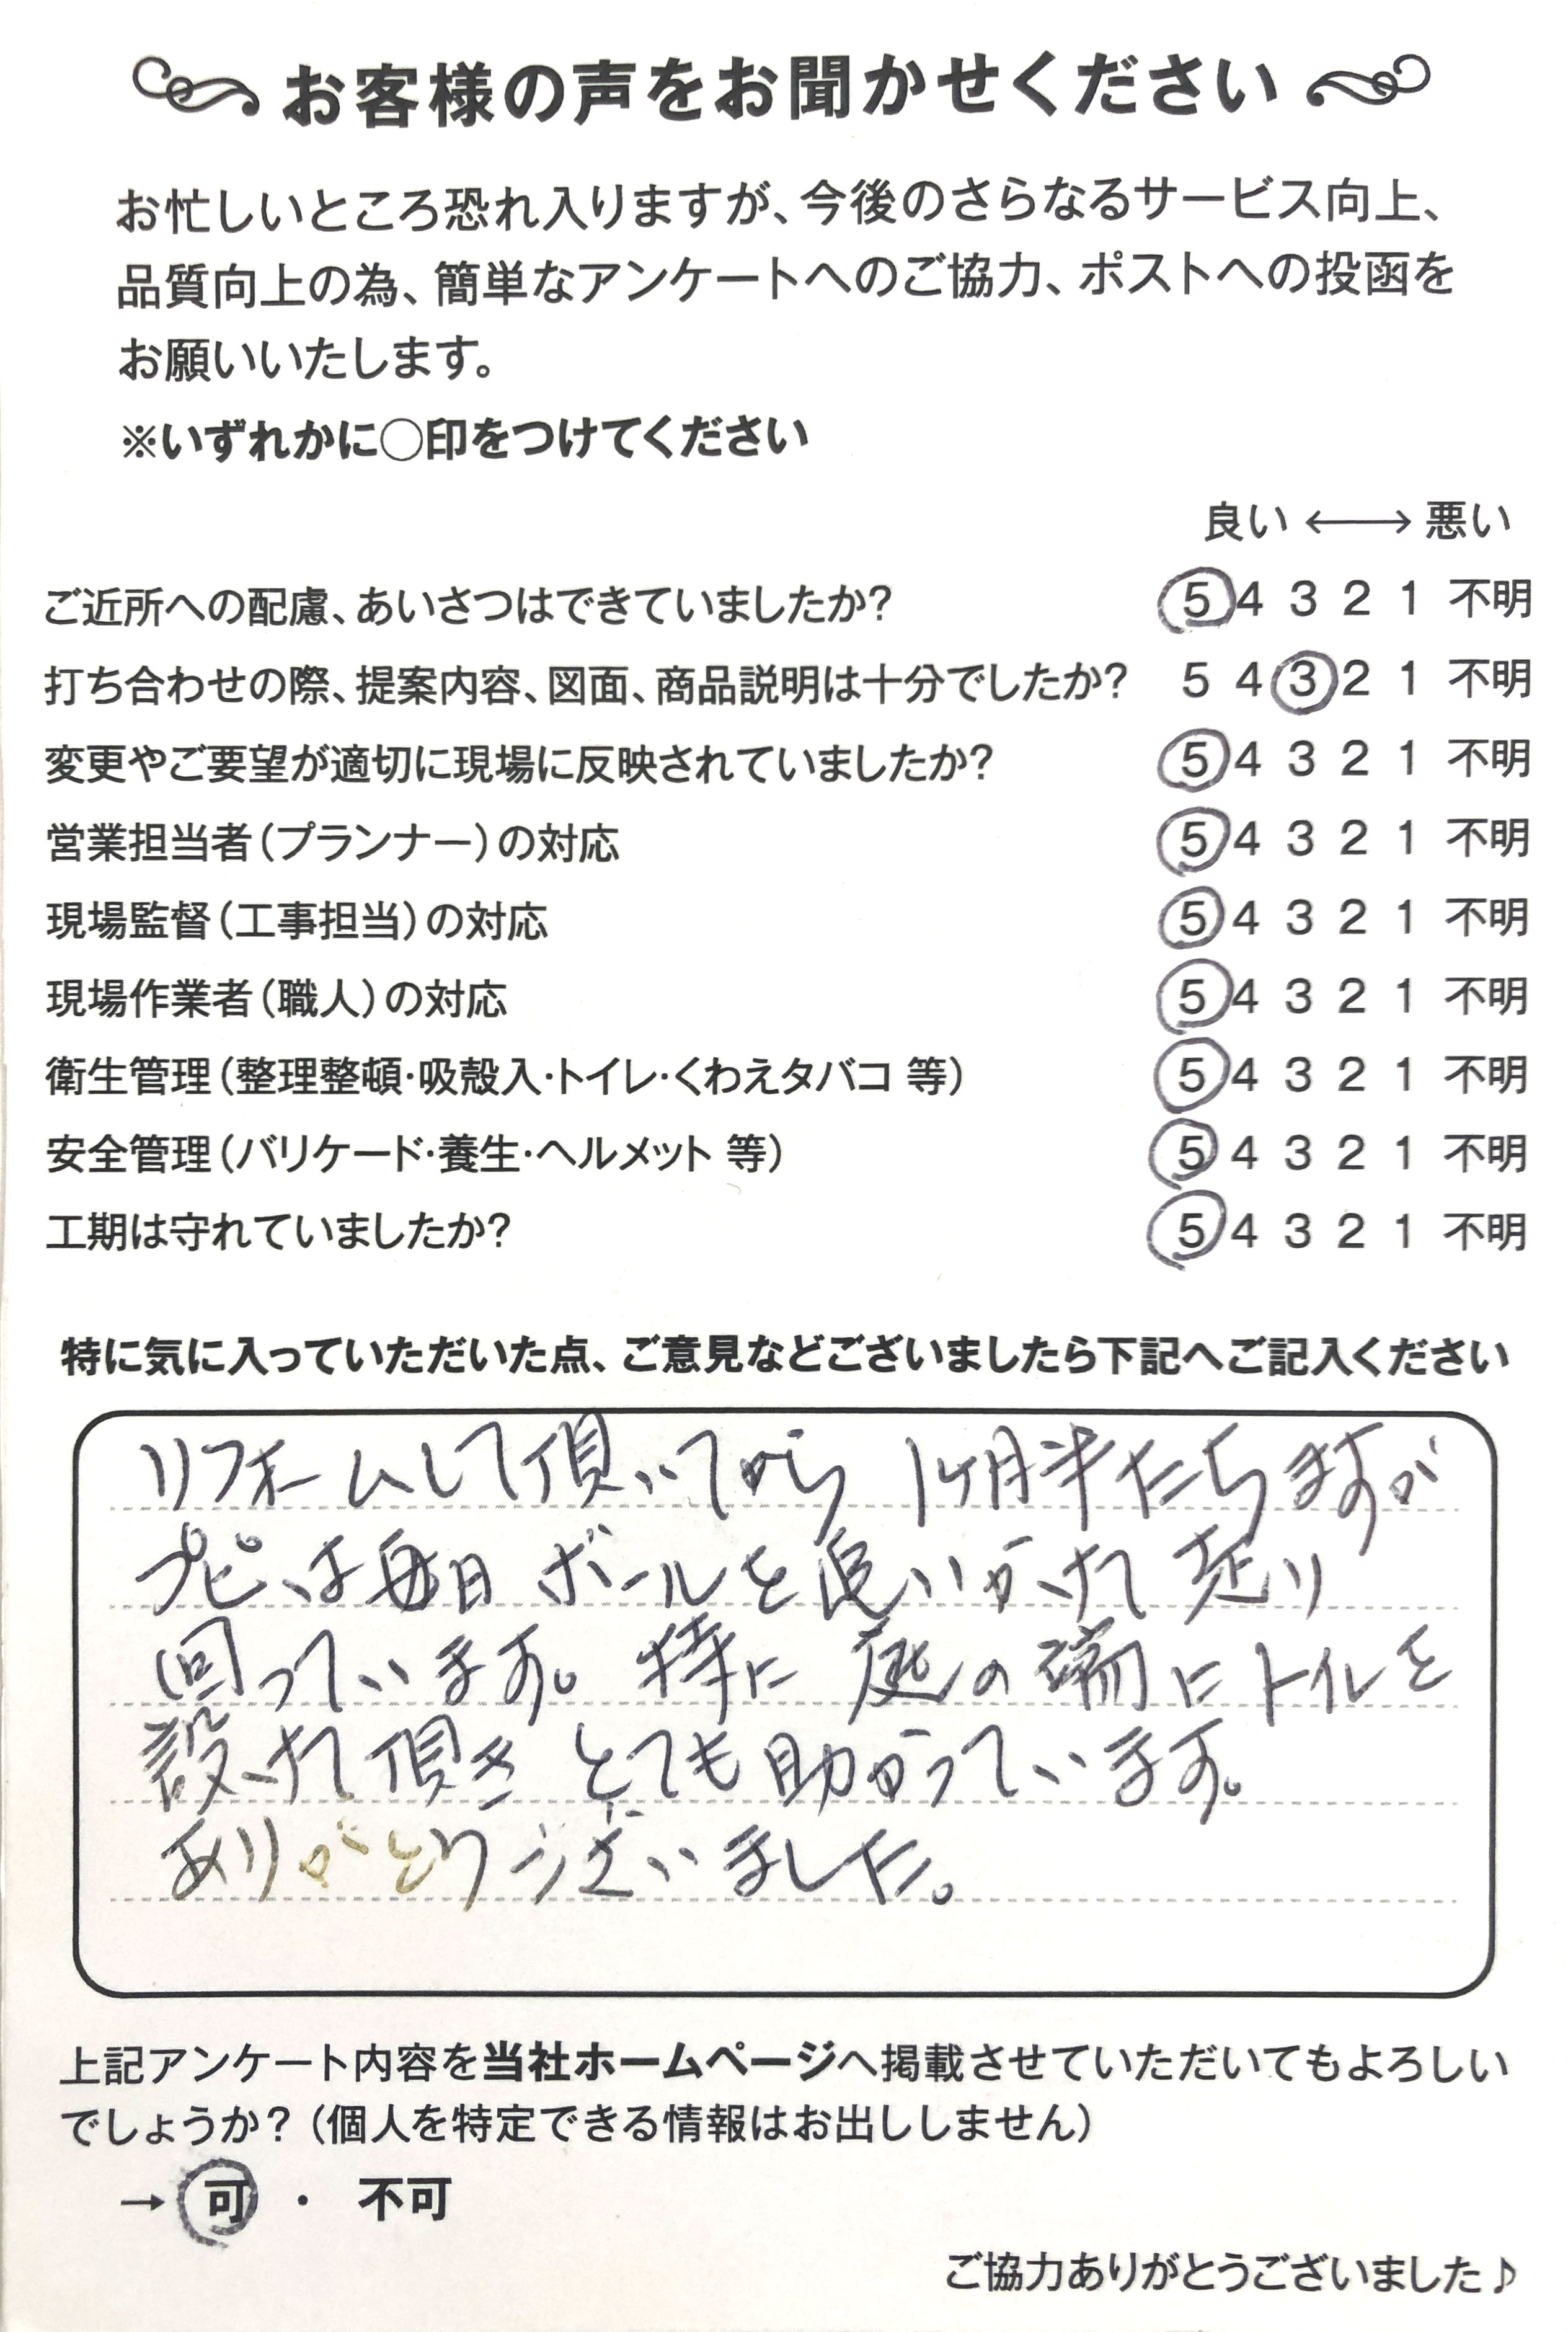 お客様の声をお聞かせください
お忙しいところ恐れ入りますが、今後のさらなるサービス向上、
品質向上の為、簡単なアンケートへのご協力、ポストへの投函を
お願いいたします。
※いずれかに○印をつけてください
良い ←→ 悪い
ご近所への配慮、あいさつはできていましたか? 5 4 3 2 1 不明
打ち合わせの際、提案内容、図面、商品説明は十分でしたか? 5 4 3 2 1 不明
変更やご要望が適切に現場に反映されていましたか? 5 4 3 2 1 不明
営業担当者(プランナー)の対応 5 4 3 2 1 不明
現場監督(工事担当)の対応 5 4 3 2 1 不明
現場作業者(職人)の対応 5 4 3 2 1 不明
衛生管理(整理整頓・吸殻入・トイレ・くわえタバコ 等) 5 4 3 2 1 不明
安全管理(バリケード・養生・ヘルメット 等) 5 4 3 2 1 不明
工期は守れていましたか? 5 4 3 2 1 不明
特に気に入っていただいた点、ご意見などございましたら下記へご記入ください
リフォームして頂いてから 1ヶ月半たちますが
プピは毎日 ボールを追いかけて 走り
回っています。特に 庭の端にトイレを
設けて頂き とても助かっています。
ありがとうございました。
上記アンケート内容を当社ホームページへ掲載させていただいてもよろしい
でしょうか?(個人を特定できる情報はお出ししません)
→ 可 ・ 不可
ご協力ありがとうございました♪